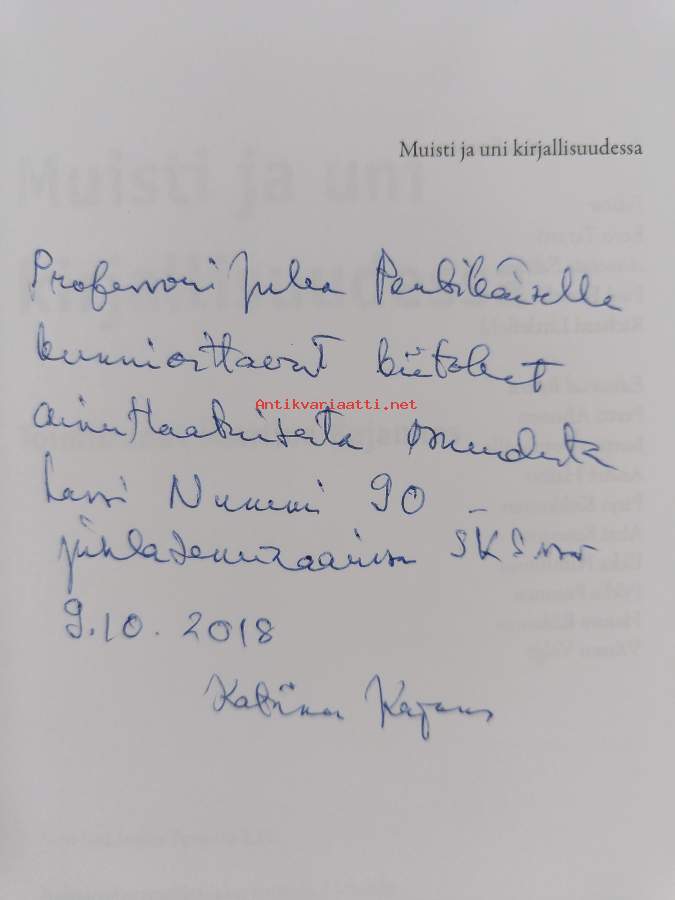 Muisti ja uni kirjallisuudessa
Professori Juha Pentikäiselle
kunnioittavat kiitokset
Antikvariaatti.net
ainutlaatuisesta osuudesta
Lassi Nummi 90 –
juhlaseminaarissa SKS:ssa
9.10.2018
Katriina Kajannes